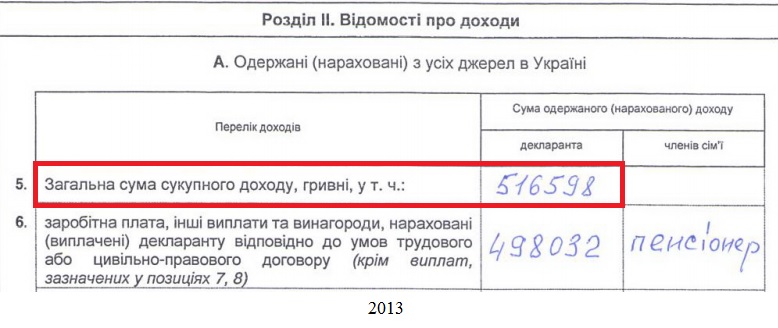 Розділ II. Відомості про доходи
А. Одержані (нараховані) з усіх джерел в Україні
Перелік доходів
Сума одержаного (нарахованого) доходу
декларанта
членів сім'ї
5. Загальна сума сукупного доходу, гривні, у т. ч.: 516598
6. заробітна плата, інші виплати та винагороди, нараховані
(виплачені) декларанту відповідно до умов трудового
або цивільно-правового договору (крім виплат,
зазначених у позиціях 7, 8)
498032 пенсіонер
2013